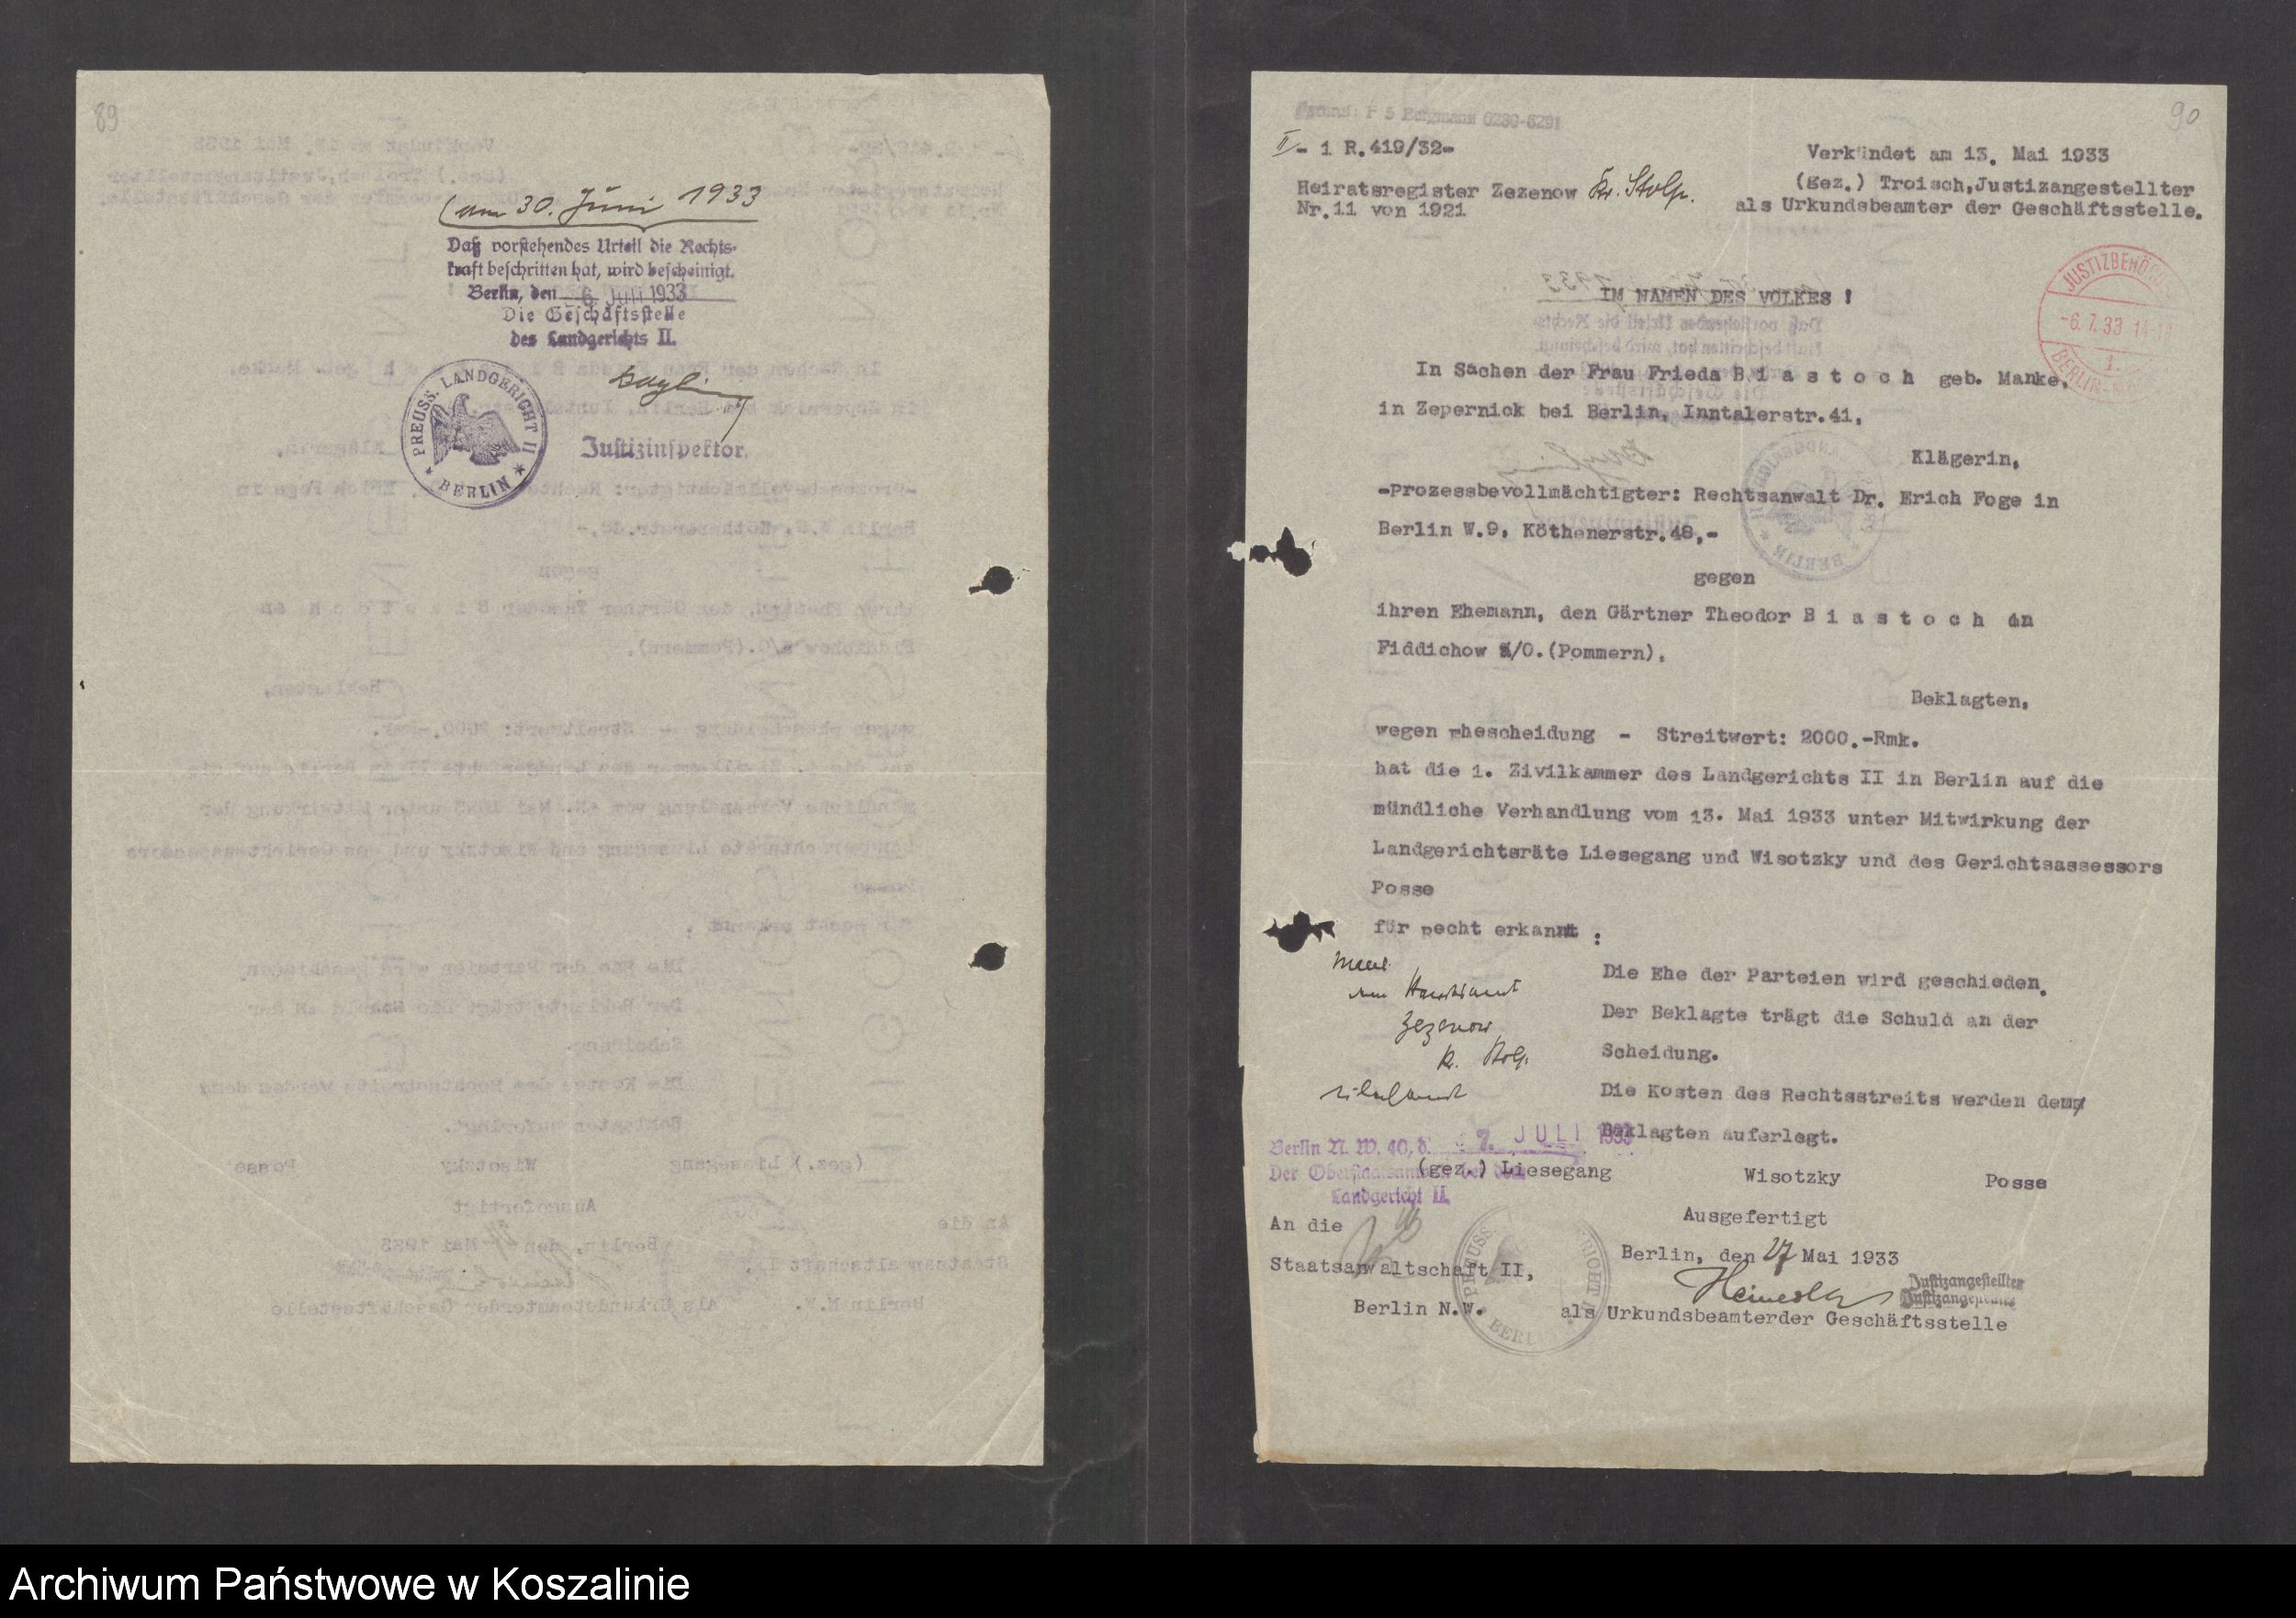 89
(am 30. Juni 1933
Daß vorstehendes Urteil die Rechts-
kraft beschritten hat, wird bescheinigt.
Berlin, den 6. JULI 1933
Die Geschäftsstelle
des Landgerichts II.
PREUSS. LANDGERICHT II
* BERLIN *
Justizinspektor.
90
II- 1 R.419/32-
Verkündet am 13. Mai 1933
(gez.) Troisch,Justizangestellter
als Urkundsbeamter der Geschäftsstelle.
Heiratsregister Zezenow Kr. Stolp.
Nr.11 von 1921
JUSTIZBEHÖR
-6.7.33.14-
1.
BERLIN
IM NAMEN DES VOLKES !
In Sachen der Frau Frieda B i a s t o c h geb. Manke,
in Zepernick bei Berlin, Inntalerstr.41,
Klägerin,
-Prozessbevollmächtigter: Rechtsanwalt Dr. Erich Foge in
Berlin W.9, Köthenerstr.48,-
gegen
ihren Ehemann, den Gärtner Theodor B i a s t o c h in
Fiddichow a/O.(Pommern),
Beklagten,
wegen Ehescheidung - Streitwert: 2000.-Rmk.
hat die 1. Zivilkammer des Landgerichts II in Berlin auf die
mündliche Verhandlung vom 13. Mai 1933 unter Mitwirkung der
Landgerichtsräte Liesegang und Wisotzky und des Gerichtsassessors
Posse
für Recht erkannt :
Die Ehe der Parteien wird geschieden.
Der Beklagte trägt die Schuld an der
Scheidung.
Die Kosten des Rechtsstreits werden dem
Beklagten auferlegt.
dem Standesamt
Zezenow
Kr. Stolp.
Berlin N. W. 40, d. 7. JULI 1933
Der Oberstaatsanwalt bei dem
Landgericht II.
(gez.) Liesegang Wisotzky Posse
An die
Staatsanwaltschaft II,
Berlin N.W.
Ausgefertigt
Berlin, den 27 Mai 1933
Justizangestellter
Justizangestellter
als Urkundsbeamterder Geschäftsstelle
Archiwum Państwowe w Koszalinie